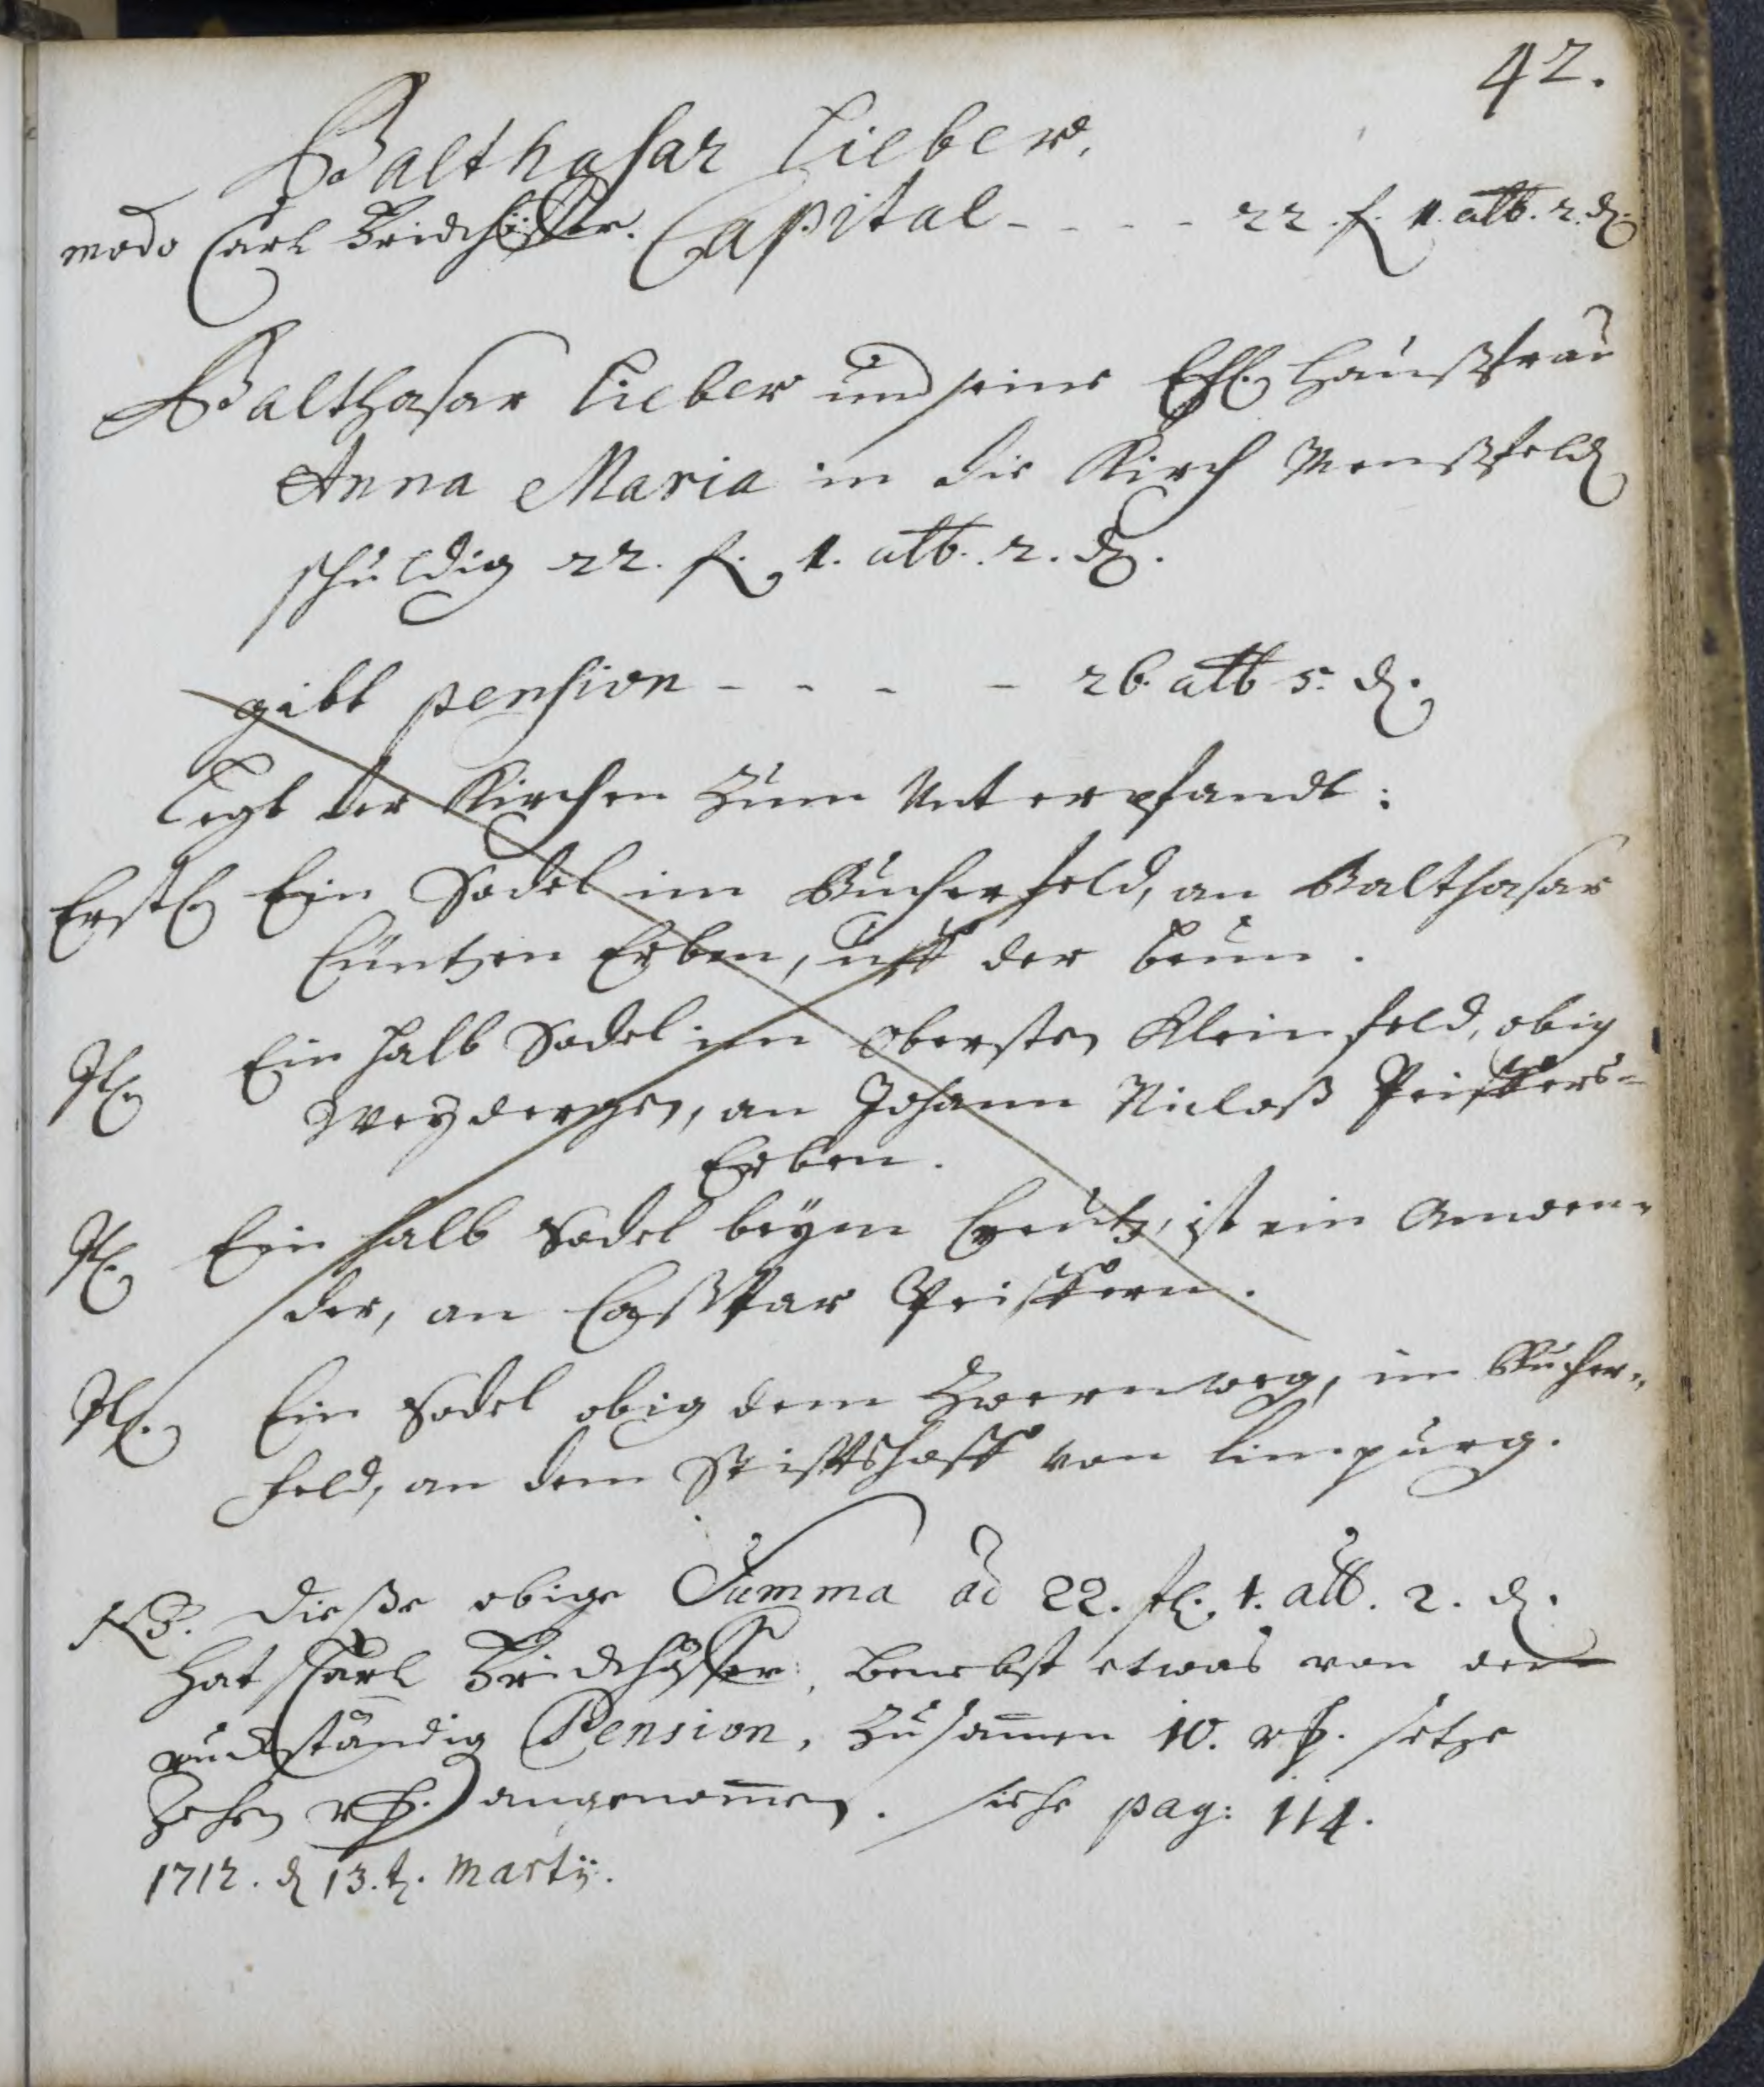 42.
Balthasar Lieber,
modo Carl Bridchöffer. Capital - - - - 22. f. 1. alb. 2. d.
Balthasar Lieber und seine Ehl. Haußfrau
Anna Maria in die Kirch Menßfeld
schuldig 22. f. 1. alb. 2. d.
gibt pension - - - - 26. alb 5. d.
Legt der Kirchen Zum Unterpfandt:
Erstl. Ein Sodel im Bucherfeld, an Balthasar
Cuntzen Erben, uff der beun.
It. Ein halb Sodel im obersten Kleinfeld, obig
Weydergen, an Johann Niclaß
Erben.
It. Ein halb Sodel beym Creutz, ist ein Anwen-
der, an Caspar
It. Ein Sodel obig dem weg, im Bucher-
feld, an dem Stiftshoff von Limpurg.
NB. Dieße obige Summa ad 22. fl. 1. alb. 2. d.
Hat Carl Bridchöffer, benebst etwas von der
rückständig Pension, Zusamen 10. rth. setze
Zehen rth. angenomen. siehe pag: 114.
1712. d 13. t. Martij.